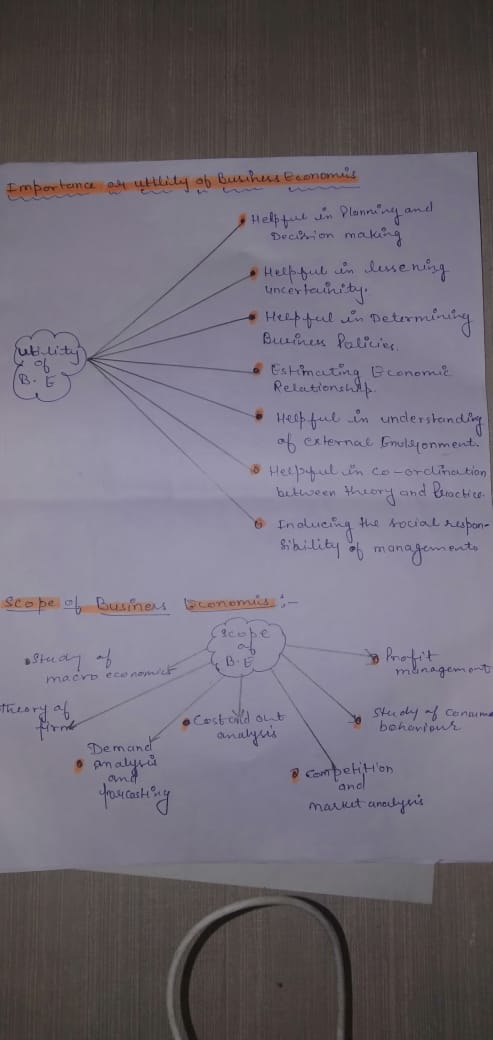 Importance or utility of Business Economics
Helpful in Planning and
Decision making
Helpful in lessening
uncertainity.
Helpful in Determining
Business Policies.
Utility
of
B.E
Estimating Economic
Relationship.
Helpful in understanding
of external Environment.
Helpful in co-ordination
between theory and Practice.
Inducing the social respon-
sibility of managements
Scope of Business Economics :-
Scope
of
B.E
Study of
macro economics
Profit
management
Theory of
firm
Cost and out
analysis
Study of consume
behaviour
Demand
analysis
and
forcasting
Competition
and
market analysis